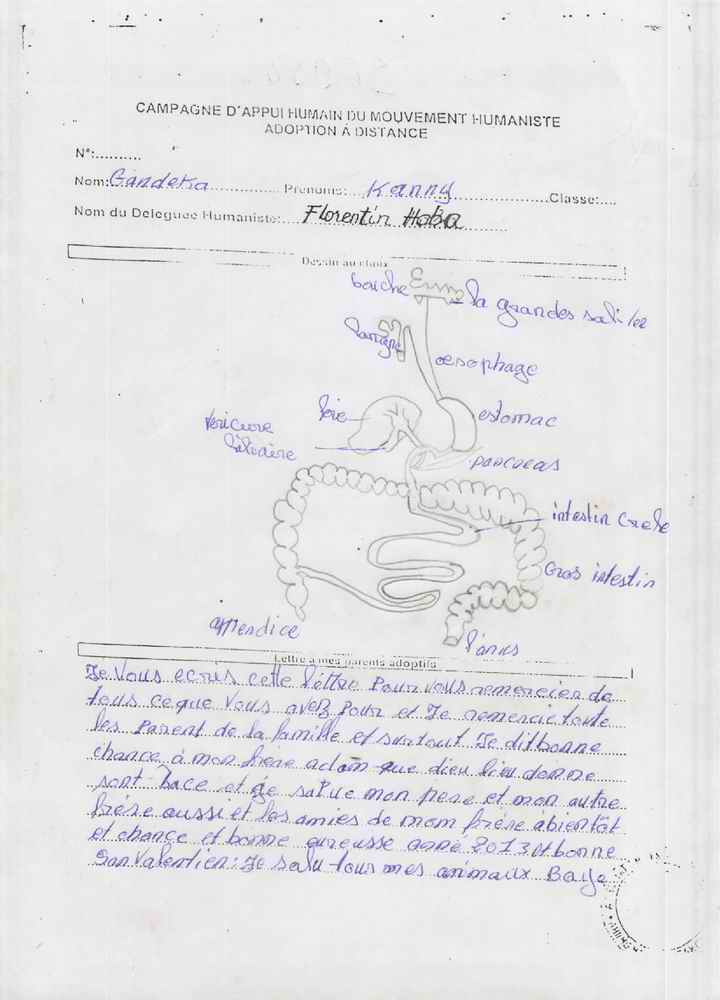 CAMPAGNE D'APPUI HUMAIN DU MOUVEMENT HUMANISTE
ADOPTION À DISTANCE
N°:..........
Nom: Gandeka Prenoms: Kanny Classe:....
Nom du Deleguee Humaniste: Florentin Haba
Dessin au choix
bouche la grandes sali
œsophage
foie estomac
pancreas
intestin Grele
Gros intestin
Appendice
l'anus
Lettre à mes parents adoptifs
Je Vous ecris cette lettre Pour vous remercier de
tous ce que Vous avez Pour et Je remercie toute
les Parent de la famille et surtout Je dit bonne
chance à mon frere adam que dieu lui donne
sont et je salue mon pere et mon autre
frére aussi et les amies de mom frére àbientôt
et chance et bonne eureusse anné 2013 et bonne
San Valentien: Je salu tous mes animaux Baye